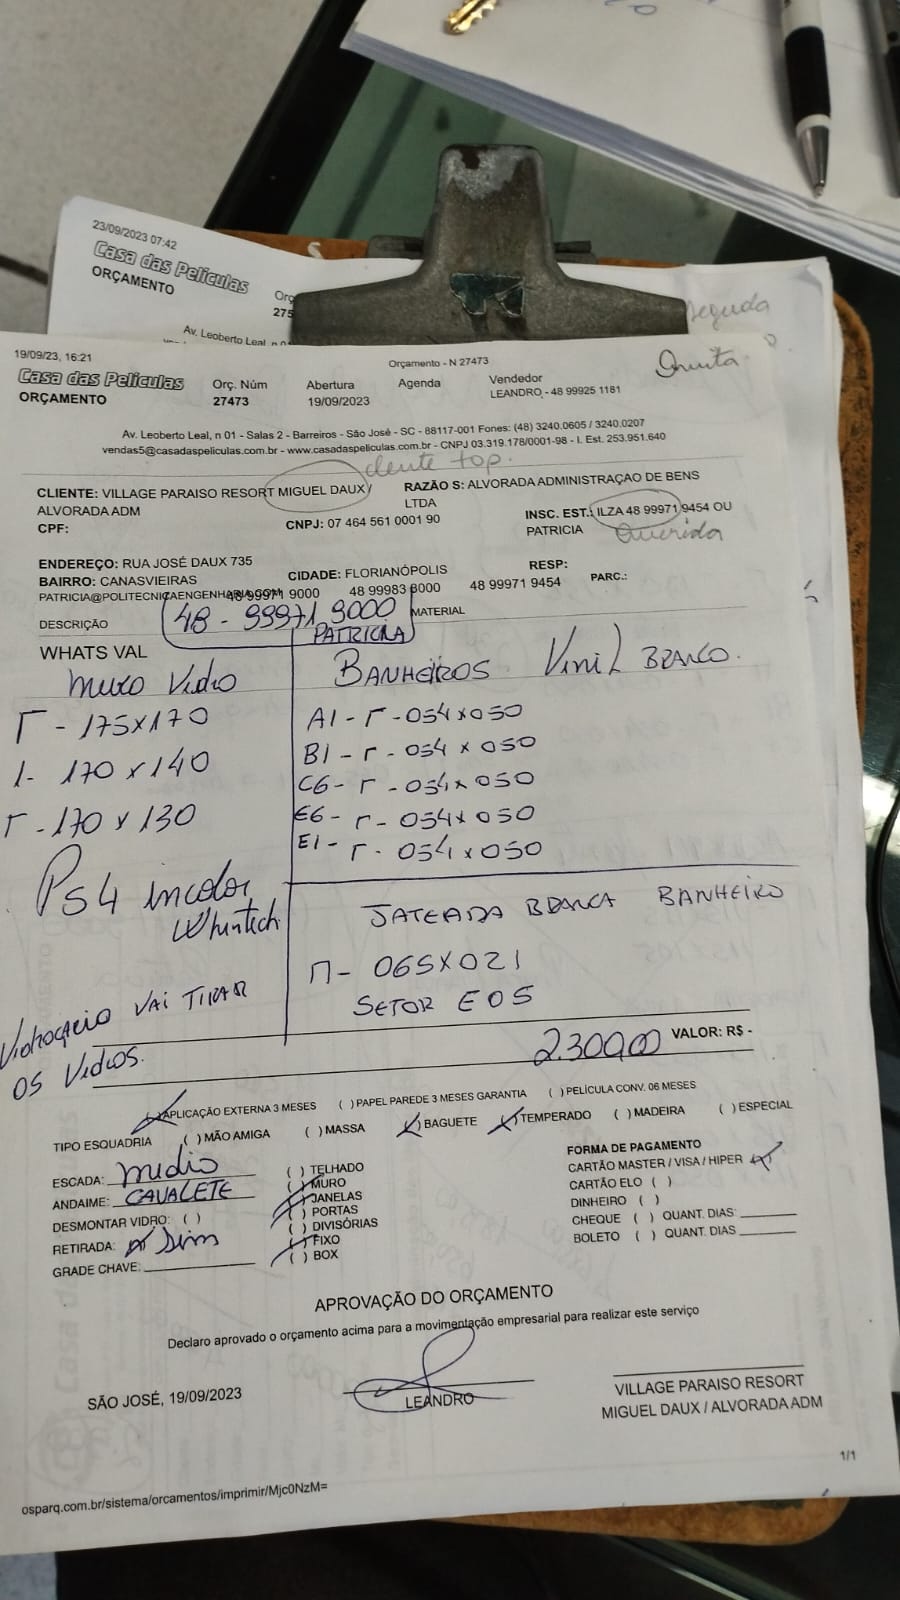 23/09/2023 07:42
Casa das Películas
ORÇAMENTO
Orç
275
Av. Leoberto Leal, n 01
Segunda
19/09/23, 16:21
Orçamento - N 27473
Quinta
Casa das Películas
ORÇAMENTO
Orç. Núm
27473
Abertura
19/09/2023
Agenda
Vendedor
LEANDRO - 48 99925 1181
Av. Leoberto Leal, n 01 - Salas 2 - Barreiros - São José - SC - 88117-001 Fones: (48) 3240.0605 / 3240.0207
vendas5@casadaspeliculas.com.br - www.casadaspeliculas.com.br - CNPJ 03.319.178/0001-98 - I. Est. 253.951.640
cliente top.
CLIENTE: VILLAGE PARAISO RESORT MIGUEL DAUX/
ALVORADA ADM
RAZÃO S: ALVORADA ADMINISTRAÇAO DE BENS
LTDA
CPF:
CNPJ: 07 464 561 0001 90
INSC. EST.: ILZA 48 99971 9454 OU
PATRICIA
Querida
ENDEREÇO: RUA JOSÉ DAUX 735
BAIRRO: CANASVIEIRAS
CIDADE: FLORIANÓPOLIS
RESP:
PATRICIA@POLITECNICAENGENHARIA.COM
48 99971 9000
48 99983 8000
48 99971 9454
PARC.:
DESCRIÇÃO
48 - 99971.9000
PATRICIA
MATERIAL
WHATS VAL
Muro Vidro
Γ - 175x170
1 - 170 x 140
Γ - 170 x 130
PS4 incolor
Whintech
Vidraceiro VAI TIRAR
OS VIDROS.
BANHEIROS Vinil BRANCO.
A1 - Γ - 054 x 050
B1 - Γ - 054 x 050
C6 - Γ - 054 x 050
E6 - Γ - 054 x 050
E1 - Γ - 054 x 050
JATEADA BRANCA BANHEIRO
Π - 065X021
SETOR E05
2.300,00 VALOR: R$ -
APLICAÇÃO EXTERNA 3 MESES ( ) PAPEL PAREDE 3 MESES GARANTIA ( ) PELÍCULA CONV. 06 MESES
TIPO ESQUADRIA ( ) MÃO AMIGA ( ) MASSA (X) BAGUETE (X) TEMPERADO ( ) MADEIRA ( ) ESPECIAL
ESCADA: medio
ANDAIME: CAVALETE
DESMONTAR VIDRO: ( )
RETIRADA: (X) Sim
GRADE CHAVE:
( ) TELHADO
( ) MURO
( ) JANELAS
( ) PORTAS
( ) DIVISÓRIAS
( ) FIXO
( ) BOX
FORMA DE PAGAMENTO
CARTÃO MASTER / VISA / HIPER (X)
CARTÃO ELO ( )
DINHEIRO ( )
CHEQUE ( ) QUANT. DIAS:
BOLETO ( ) QUANT. DIAS
APROVAÇÃO DO ORÇAMENTO
Declaro aprovado o orçamento acima para a movimentação empresarial para realizar este serviço
SÃO JOSÉ, 19/09/2023
LEANDRO
VILLAGE PARAISO RESORT
MIGUEL DAUX / ALVORADA ADM
1/1
osparq.com.br/sistema/orcamentos/imprimir/Mjc0NzM=